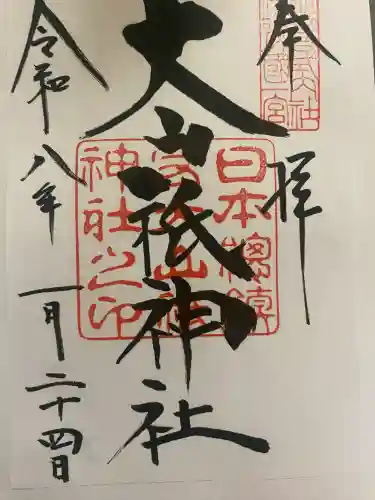 奉拝
大山祇神社
日本總鎮
神社之印
令和八年一月二十四日